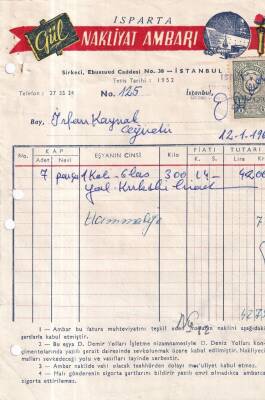 ISPARTA
Gül
NAKLİYAT AMBARI
Sirkeci, Ebussuud Caddesi No. 38 — İSTANBUL
Tesis Tarihi : 1952
Telefon : 27 35 24
No. 125
İstanbul,
Bay, İrfan Kaynak
12-1-196
No.
KAP
EŞYANIN CİNSİ
Kilo
FİATI
TUTARI
Adet
Nevi
K.
S.
Lira
7 parça 300 14-
Hammaliye
1 — Ambar bu fatura muhteviyatını teşkil eden naklini aşağıdaki
şartlarla kabul etmiştir.
2 — Bu eşya D. Demir Yolları İşletme nizamnamesiyle D. Deniz Yolları kon-
şimentolarında yazılı şerait dairesinde sevkolunmak üzere kabul edilmiştir. Nakliyat
malları sevkedeceği yolu ve vasıtayı tayinde serbesttir.
3 — Ambar nakilde vaki olacak teehhürden dolayı mes'uliyet kabul etmez.
4 — Malı gönderenin sigorta şartlarını bildirir yazılı emri olmadıkça ambarca
sigorta ettirilmez.